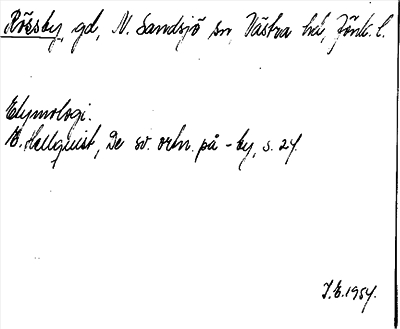 Rössby, gd, N. Sandsjö sn, Västra hd, Jönk. l.
Etymologi.
E. Hellquist, De sv. ortn. på -by, s. 24.
I.E. 1954.